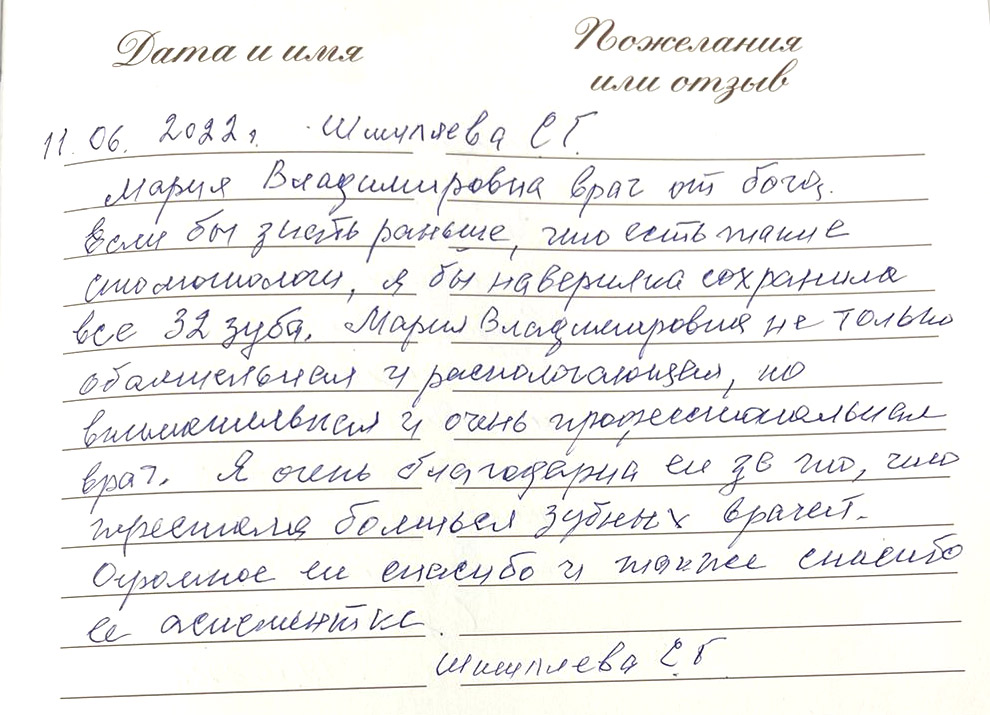 Дата и имя
Пожелания
или отзыв
11. 06. 2022г. Шмуляева С Г.
Мария Владимировна врач от бога.
Если бы знать раньше, что есть такие
стоматологи, я бы наверняка сохранила
все 32 зуба. Мария Владимировна не только
обаятельная и располагающая, но
внимательная и очень профессиональная
врач. Я очень благодарна ей за то, что
перестала бояться зубных врачей.
Огромное ей спасибо и также спасибо
ее асистентке.
Шмуляева С. Г